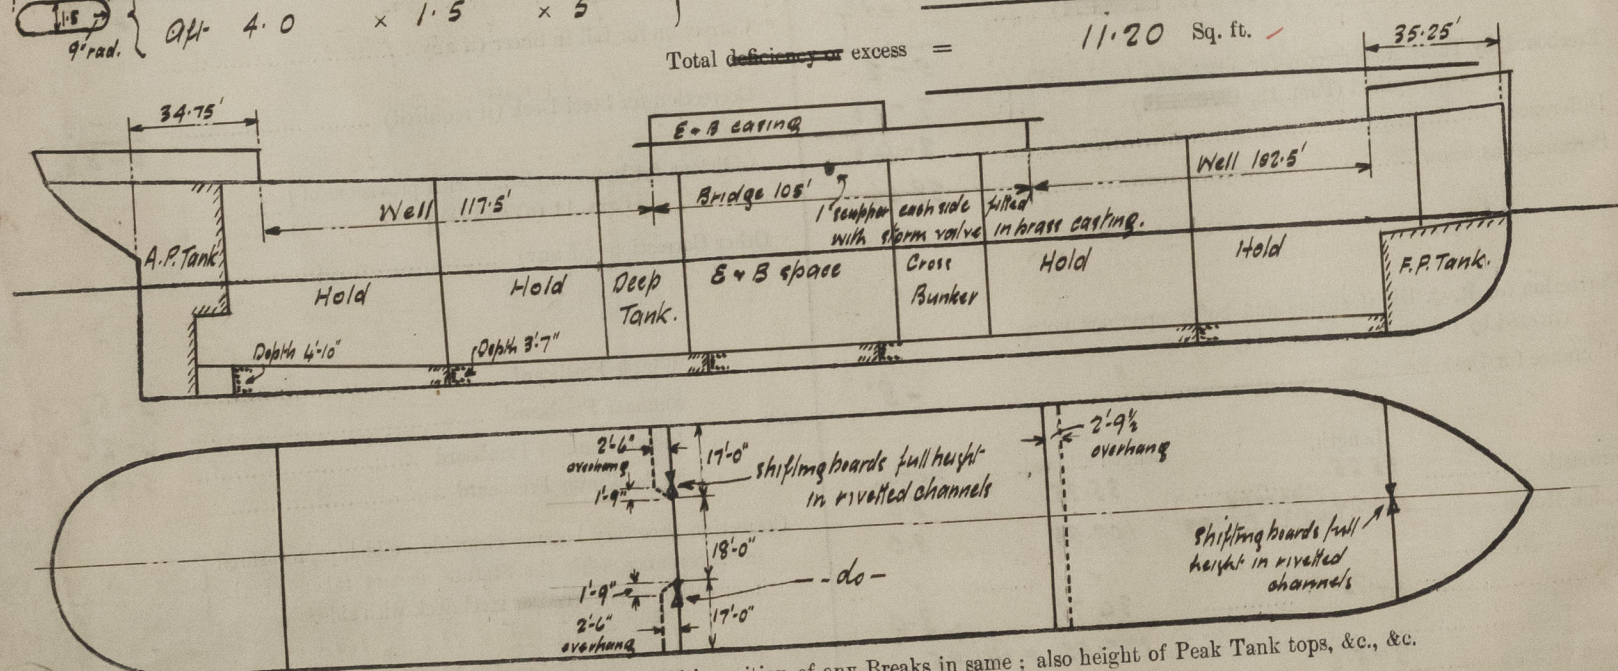 1·5
9" rad.
Aft 4·0 × 1·5 × 5
Total deficiency or excess = 11·20 Sq. ft.
34·75'
35·25'
E & B casing
Well 117·5'
Bridge 105'
Well 182·5'
1" scupper each side fitted
with storm valve in brass casting.
A.P. Tank
Hold
Hold
Deep
Tank.
E & B space
Cross
Bunker
Hold
Hold
F.P. Tank.
Depth 4'-10"
Depth 3'-7"
2'-6"
overhang
1'-9"
17'-0"
Shifting boards full height
in rivetted channels
2'-9½
overhang
18'-0"
1'-9"
- - do -
2'-6"
overhang
17'-0"
Shifting boards full
height in rivetted
channels
of any Breaks in same ; also height of Peak Tank tops, &c., &c.